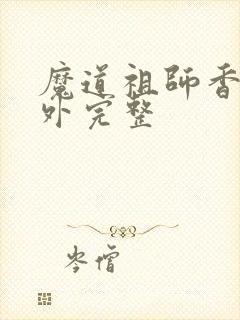 魔道祖師香
外完整
岑僧